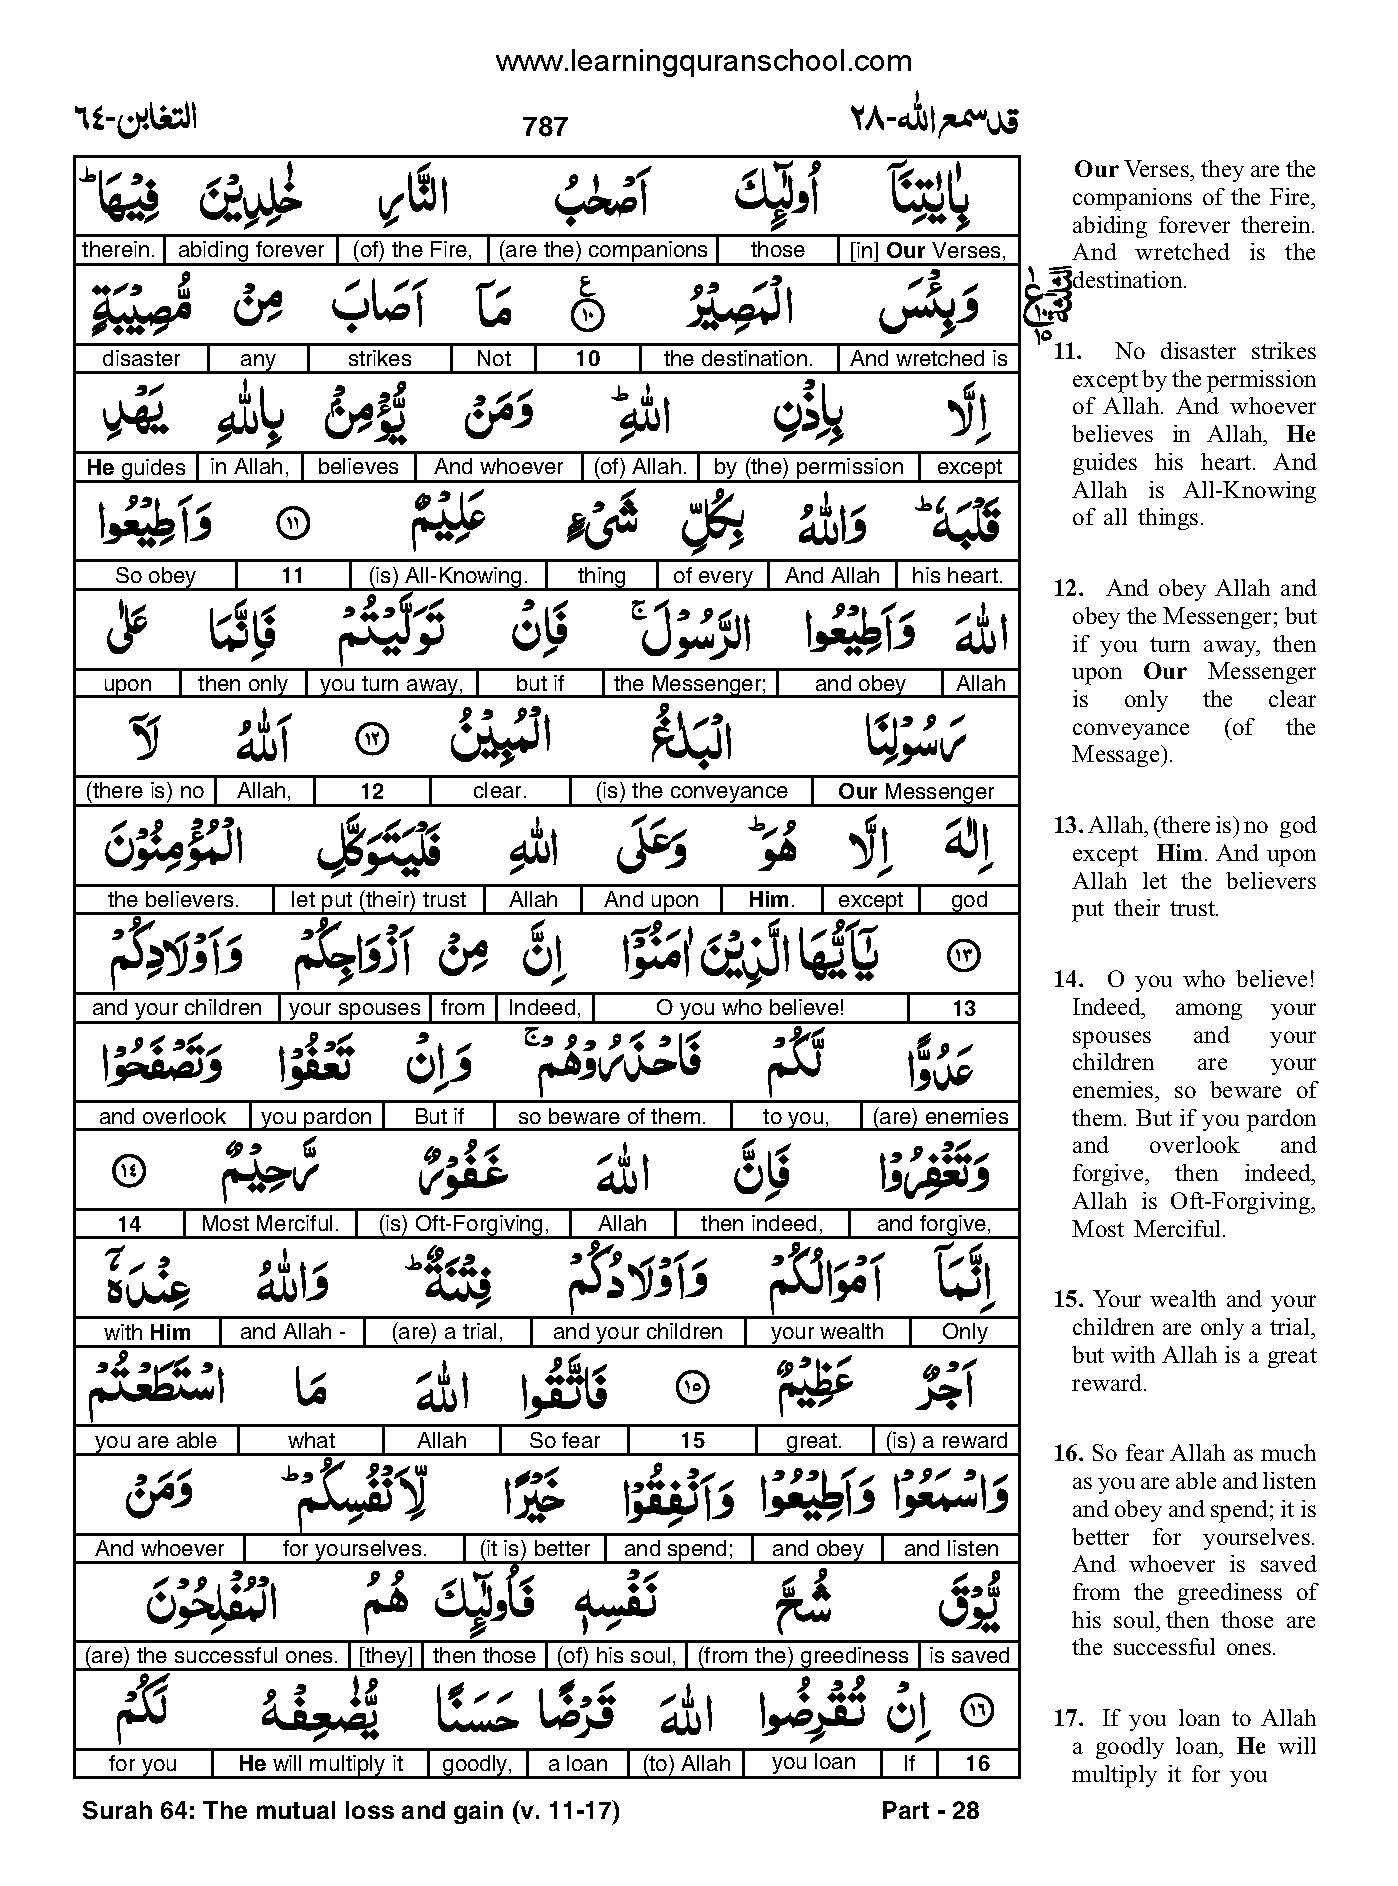 www.learningquranschool.com
التغابن-٦٤ 787 قد سمع الله-٢٨
بِاٰيٰتِنَاۤ اُولٰٓئِكَ اَصْحٰبُ النَّارِ خٰلِدِيْنَ فِيْهَاؕ
therein. abiding forever (of) the Fire, (are the) companions those [in] Our Verses,
وَبِئْسَ الْمَصِيْرُ ۧ ١٠ مَاۤ اَصَابَ مِنْ مُّصِيْبَةٍ
disaster any strikes Not 10 the destination. And wretched is
اِلَّا بِاِذْنِ اللّٰهِؕ وَمَنْ يُّؤْمِنْۢ بِاللّٰهِ يَهْدِ
He guides in Allah, believes And whoever (of) Allah. by (the) permission except
قَلْبَهٗؕ وَاللّٰهُ بِكُلِّ شَىْءٍ عَلِيْمٌ ١١ وَاَطِيْعُوا
So obey 11 (is) All-Knowing. thing of every And Allah his heart.
اللّٰهَ وَاَطِيْعُوا الرَّسُوْلَۚ فَاِنْ تَوَلَّيْتُمْ فَاِنَّمَا عَلٰى
upon then only you turn away, but if the Messenger; and obey Allah
رَسُوْلِنَا الْبَلٰغُ الْمُبِيْنُ ١٢ اَللّٰهُ لَاۤ
(there is) no Allah, 12 clear. (is) the conveyance Our Messenger
اِلٰهَ اِلَّا هُوَؕ وَعَلَى اللّٰهِ فَلْيَتَوَكَّلِ الْمُؤْمِنُوْنَ
the believers. let put (their) trust Allah And upon Him. except god
١٣ يٰۤاَيُّهَا الَّذِيْنَ اٰمَنُوْۤا اِنَّ مِنْ اَزْوَاجِكُمْ وَاَوْلَادِكُمْ
and your children your spouses from Indeed, O you who believe! 13
عَدُوًّا لَّكُمْ فَاحْذَرُوْهُمْۚ وَاِنْ تَعْفُوْا وَتَصْفَحُوْا
and overlook you pardon But if so beware of them. to you, (are) enemies
وَتَغْفِرُوْا فَاِنَّ اللّٰهَ غَفُوْرٌ رَّحِيْمٌ ١٤
14 Most Merciful. (is) Oft-Forgiving, Allah then indeed, and forgive,
اِنَّمَاۤ اَمْوَالُكُمْ وَاَوْلَادُكُمْ فِتْنَةٌؕ وَاللّٰهُ عِنْدَهٗۤ
with Him and Allah - (are) a trial, and your children your wealth Only
اَجْرٌ عَظِيْمٌ ١٥ فَاتَّقُوا اللّٰهَ مَا اسْتَطَعْتُمْ
you are able what Allah So fear 15 great. (is) a reward
وَاسْمَعُوْا وَاَطِيْعُوْا وَاَنْفِقُوْا خَيْرًا لِّاَنْفُسِكُمْؕ وَمَنْ
And whoever for yourselves. (it is) better and spend; and obey and listen
يُّوْقَ شُحَّ نَفْسِهٖ فَاُولٰٓئِكَ هُمُ الْمُفْلِحُوْنَ
(are) the successful ones. [they] then those (of) his soul, (from the) greediness is saved
١٦ اِنْ تُقْرِضُوا اللّٰهَ قَرْضًا حَسَنًا يُّضٰعِفْهُ لَكُمْ
for you He will multiply it goodly, a loan (to) Allah you loan If 16
Our Verses, they are the
companions of the Fire,
abiding forever therein.
And wretched is the
destination.
11. No disaster strikes
except by the permission
of Allah. And whoever
believes in Allah, He
guides his heart. And
Allah is All-Knowing
of all things.
12. And obey Allah and
obey the Messenger; but
if you turn away, then
upon Our Messenger
is only the clear
conveyance (of the
Message).
13. Allah, (there is) no god
except Him. And upon
Allah let the believers
put their trust.
14. O you who believe!
Indeed, among your
spouses and your
children are your
enemies, so beware of
them. But if you pardon
and overlook and
forgive, then indeed,
Allah is Oft-Forgiving,
Most Merciful.
15. Your wealth and your
children are only a trial,
but with Allah is a great
reward.
16. So fear Allah as much
as you are able and listen
and obey and spend; it is
better for yourselves.
And whoever is saved
from the greediness of
his soul, then those are
the successful ones.
17. If you loan to Allah
a goodly loan, He will
multiply it for you
Surah 64: The mutual loss and gain (v. 11-17) Part - 28